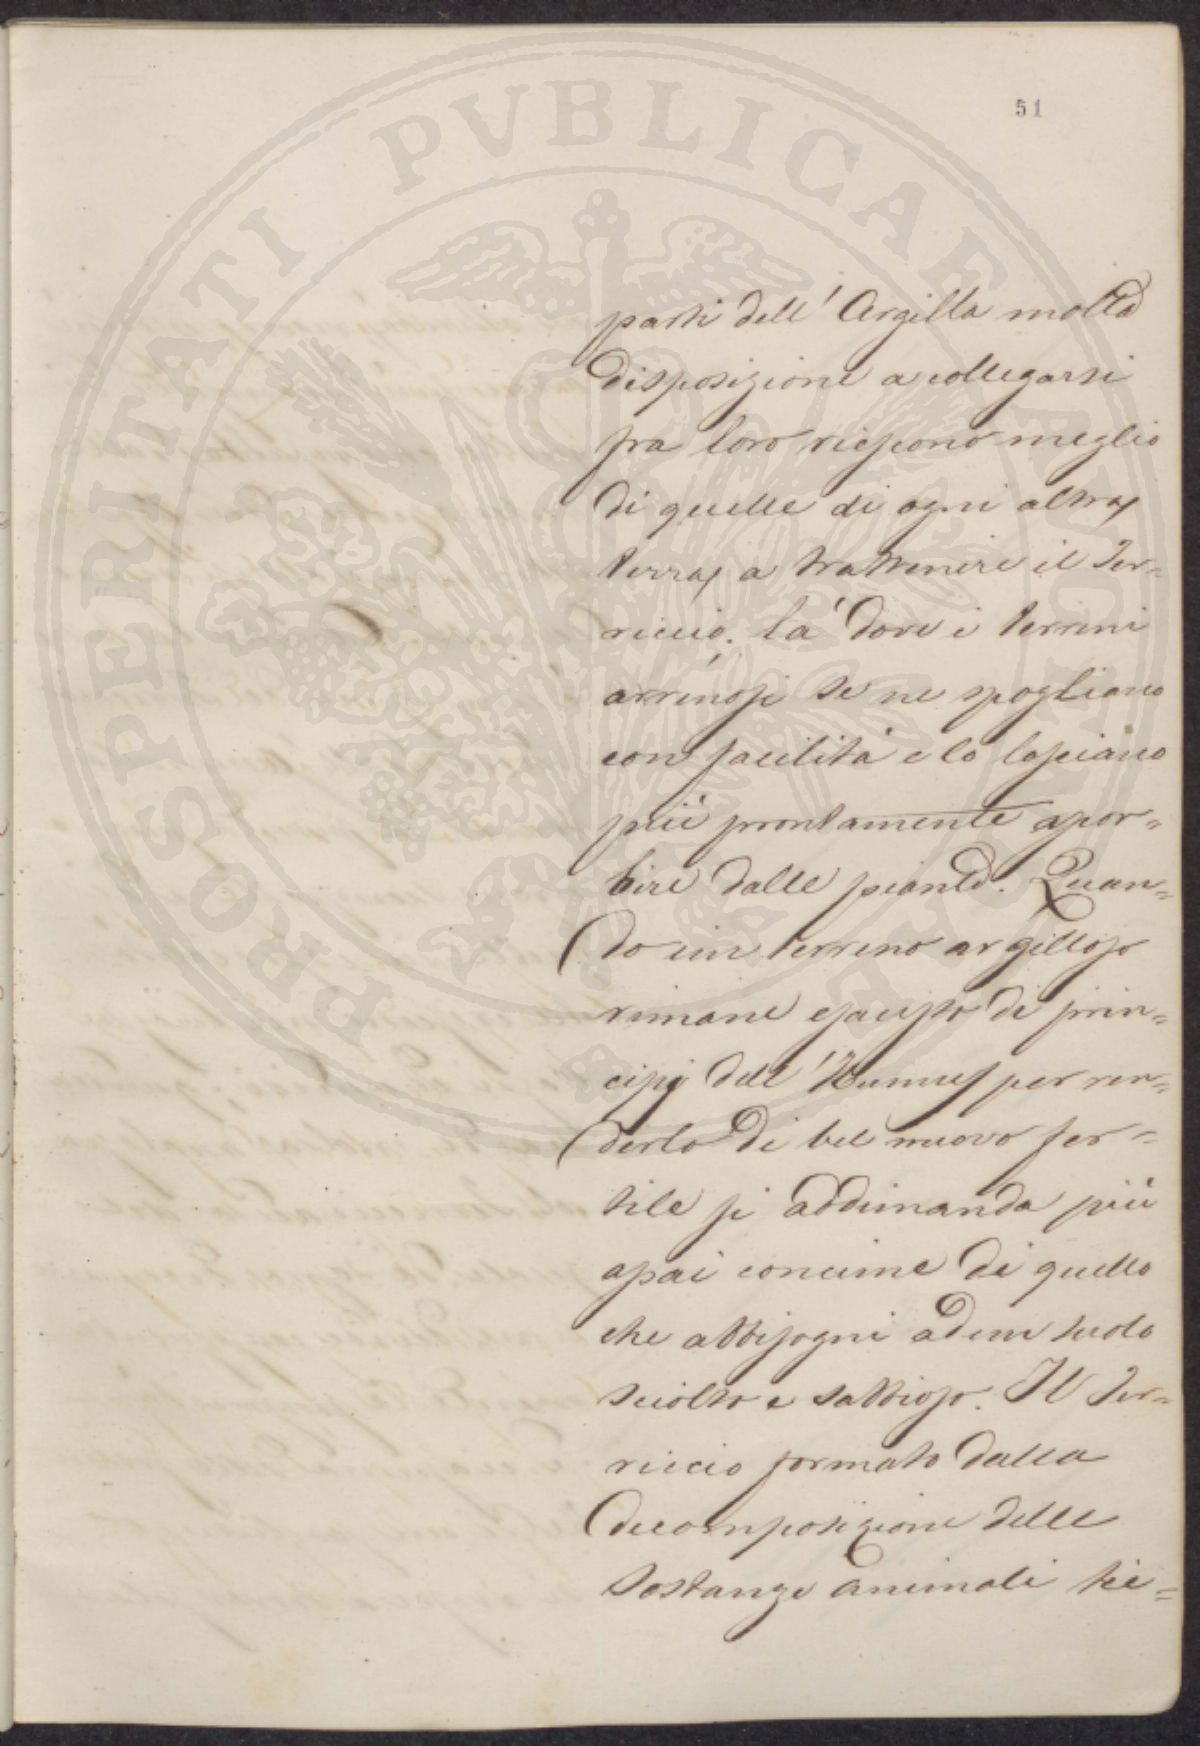 51
parti dell' Argilla molta
disposizione a collegarsi
fra loro riescono meglio
di quelle di ogni altra
terra, a trattenere il Ter=
riccio; là dove i terreni
arrenosi se ne spogliano
con facilità e lo lasciano
più prontamente assor=
bire dalle piante. Quan=
do un terreno argilloso
rimane esausto di prin=
cipj dell'Humus per ren=
derlo di bel nuovo fer=
tile si addimanda più
assai concime di quello
che abbisogni ad un suolo
sciolto e sabbioso. Il Ter=
riccio formato dalla
decomposizione delle
sostanze animali tie=
PROSPERITATI PVBLICAE AVGENDAE